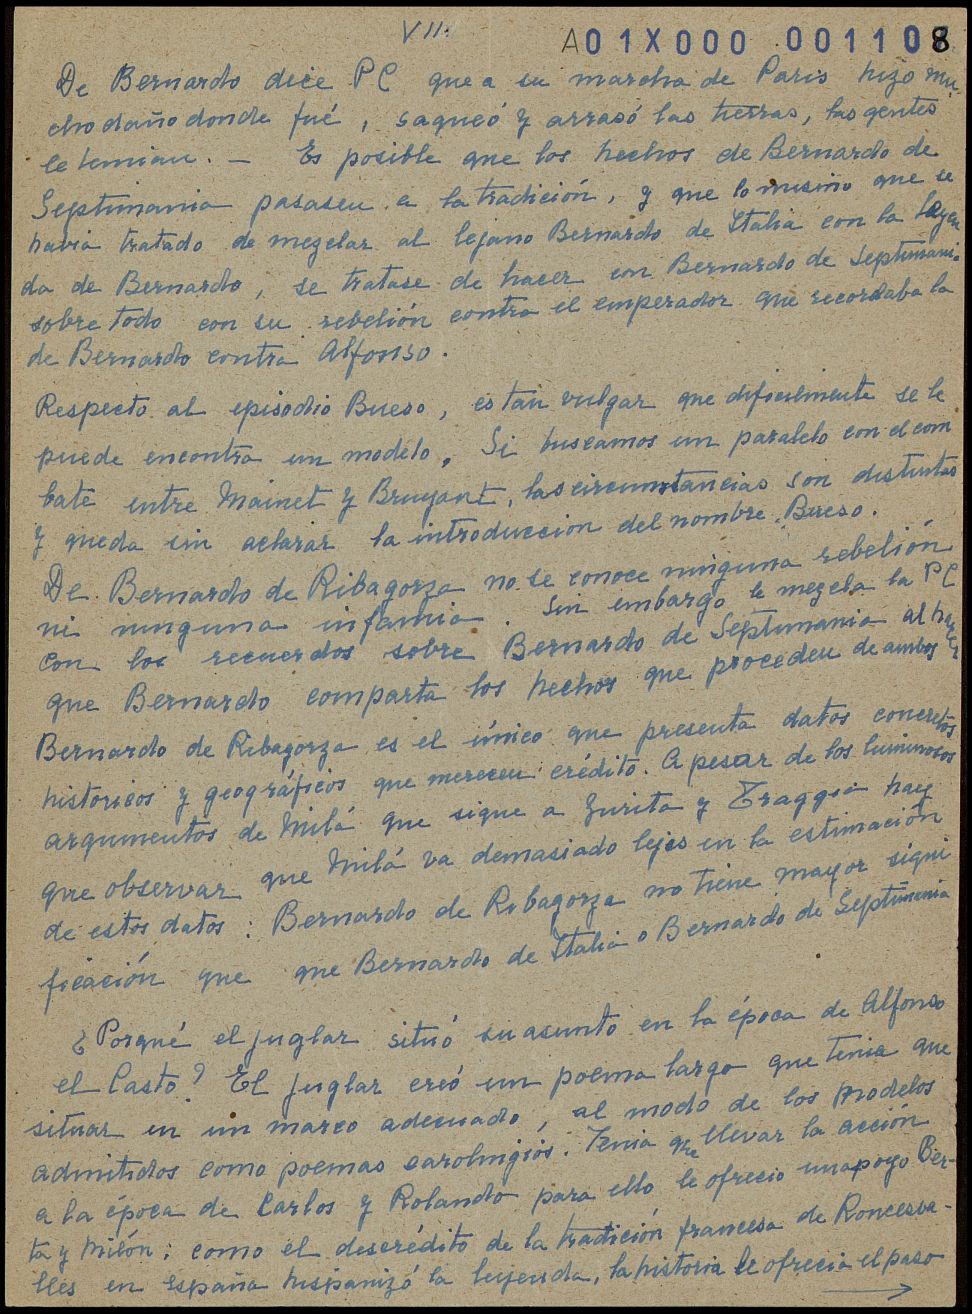 VII.
A01X000 001108
De Bernardo dice PC que a su marcha de Paris hizo mu-
cho daño donde fué, saqueó y arrasó las tierras, las gentes
le temian. — Es posible que los hechos de Bernardo de
Septimania pasasen a la tradición, y que lo mismo que se
habia tratado de mezclar al lejano Bernardo de Italia con la leyen
da de Bernardo, se tratase de hacer con Bernardo de Septimania
sobre todo con su rebelión contra el emperador que recordaba la
de Bernardo contra Alfonso.
Respecto al episodio Bueso, es tan vulgar que dificilmente se le
puede encontra un modelo. Si buscamos un paralelo con el com
bate entre Mainet y Bruyant, las circumstancias son distintas
y queda sin aclarar la introduccion del nombre Bueso.
De Bernardo de Ribagorza no se conoce ninguna rebelión
ni ninguna infamia. Sin embargo le mezcla la PC
con los recuerdos sobre Bernardo de Septimania al hacer
que Bernardo comparta los hechos que proceden de ambos
Bernardo de Ribagorza es el único que presenta datos concretos
historicos y geográficos que merecen crédito. A pesar de los luminosos
argumentos de Milá que sigue a Zurita y Traggia hay
que observar que Milá va demasiado lejos en la estimación
de estos datos: Bernardo de Ribagorza no tiene mayor signi
ficación que que Bernardo de Italia o Bernardo de Septimania
¿Porqué el juglar situó su asunto en la época de Alfonso
el Casto? El juglar creó un poema largo que tenia que
situar en un marco adecuado, al modo de los modelos
admitidos como poemas carolingios. Tenia que llevar la acción
a la época de Carlos y Rolando para ello le ofrecio un apoyo Ber-
ta y Milón: como el descrédito de la tradición francesa de Roncesva-
lles en España hispanizó la leyenda, la historia le ofrecia el paso